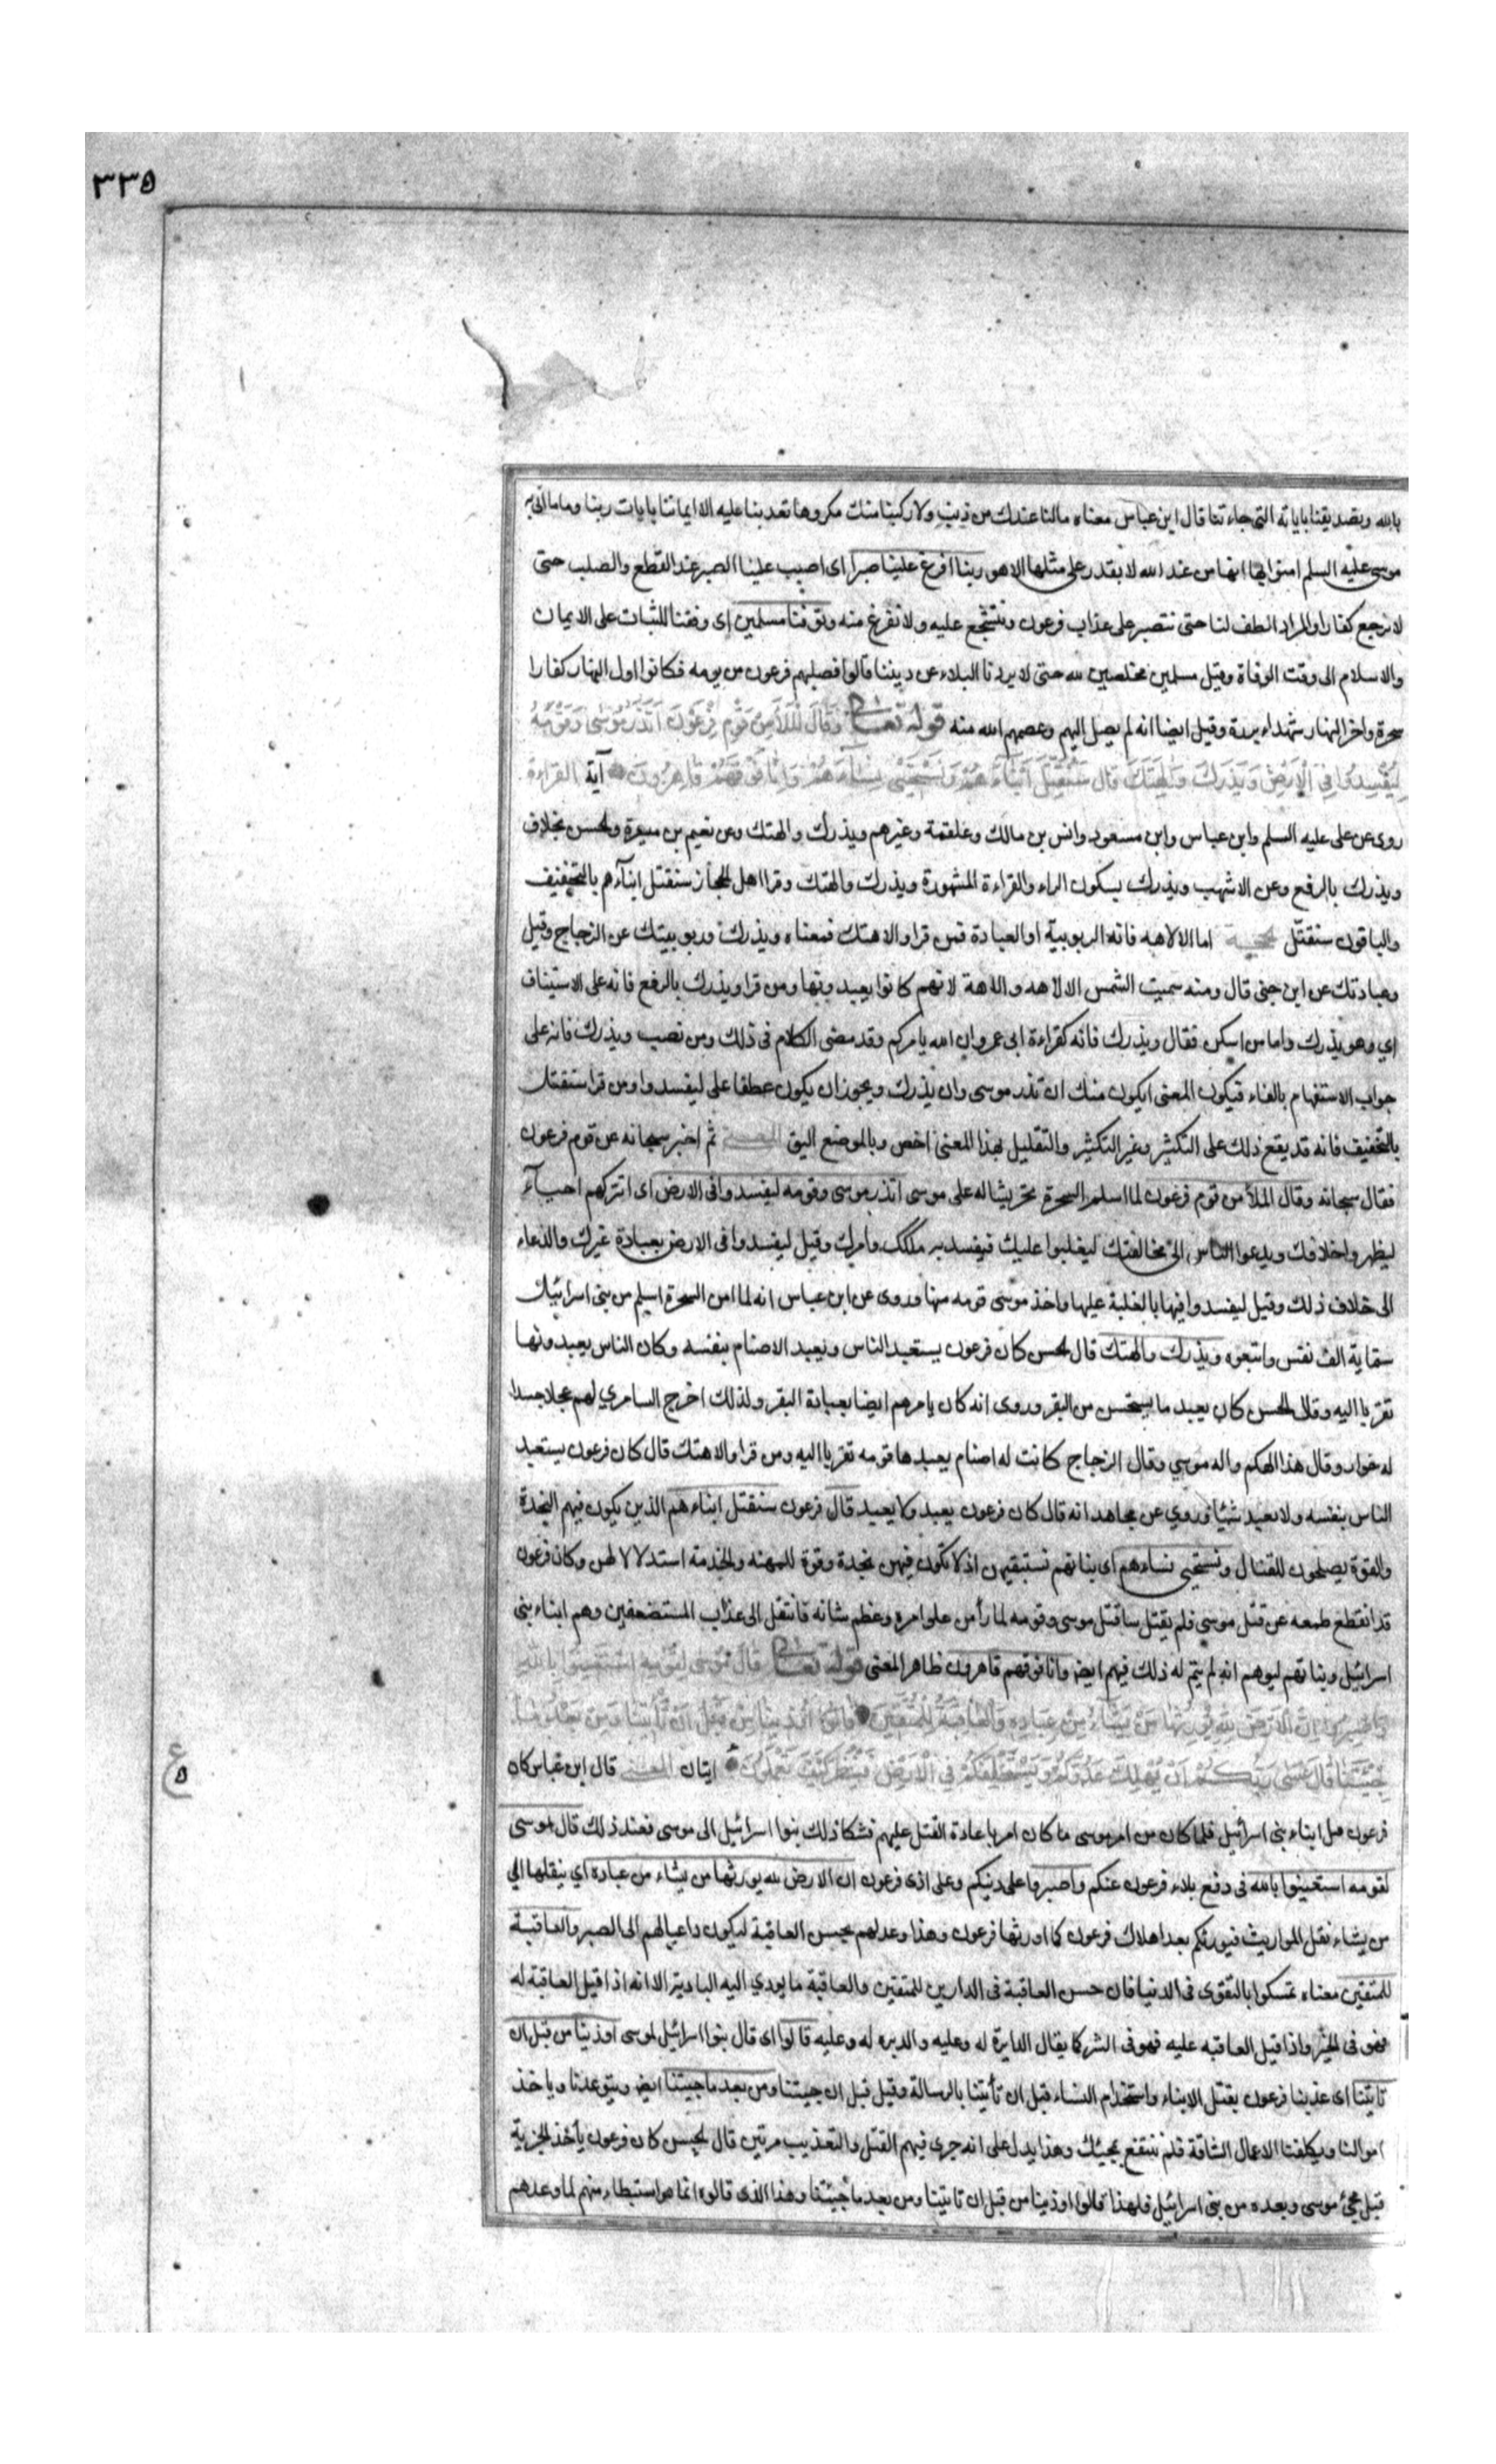 ٣٣٥
بالله وبصديقنا باياته التى جاءتنا قال ابن عباس معناه مالنا عندك من ذنب ولا ركبنا منك مكروها تعذبنا عليه الا ايماننا بايات ربنا وما اتى به
موسى عليه السلم امنوا بها انها من عند الله لا يقدر على مثلها الا هو ربنا افرغ علينا صبرا اى اصبب علينا الصبر عند القطع والصلب حتى
لا نرجع كفارا والمراد الطف لنا حتى نتصبر على عذاب فرعون ونتشجع عليه ولا نفزع منه وتوفنا مسلمين اى وفقنا للثبات على الايمان
والاسلام الى وقت الوفاة وقيل مسلمين مخلصين لله حتى لا يردنا البلاء عن ديننا قالوا فصلبهم فرعون من يومه فكانوا اول النهار كفارا
سحرة واخر النهار شهداء بررة وقيل ايضا انه لم يصل اليهم وعصمهم الله منه قوله تعالى وَقَالَ الْمَلَأُ مِنْ قَوْمِ فِرْعَوْنَ أَتَذَرُ مُوسَى وَقَوْمَهُ
لِيُفْسِدُوا فِي الْأَرْضِ وَيَذَرَكَ وَآلِهَتَكَ قَالَ سَنُقَتِّلُ أَبْنَاءَهُمْ وَنَسْتَحْيِي نِسَاءَهُمْ وَإِنَّا فَوْقَهُمْ قَاهِرُونَ آية القراءة
روى عن على عليه السلم وابن عباس وابن مسعود وانس بن مالك وعلقمة وغيرهم ويذرك والهتك وعن نعيم بن ميسرة والحسن بخلاف
ويذرك بالرفع وعن الاشهب ويذرك بسكون الراء والقراءة المشهورة ويذرك والهتك وقرا اهل الحجاز سنقتل ابنآءهم بالتخفيف
والباقون سنقتّل الحجة اما الالاهه فانه الربوبية او العبادة فمن قرا والاهتك فمعناه ويذرك وربوبيتك عن الزجاج وقيل
وعبادتك عن ابن جنى قال ومنه سميت الشمس الالاهه والاهة لانهم كانوا يعبدونها ومن قرا ويذرك بالرفع فانه على الاستيناف
اي وهو يذرك واما من اسكن فقال ويذرك فانه كقراءة ابى عمرو ان الله يامركم وقد مضى الكلام فى ذلك ومن نصب ويذرك فانه على
جواب الاستفهام بالفاء فيكون المعنى ايكون منك ان تذر موسى وان يذرك ويجوز ان يكون عطفا على ليفسدوا ومن قرا سنقتل
بالتخفيف فانه قد يقع ذلك على التكثير وغير التكثير والتقليل بهذا المعنى اخص وبالموضع اليق المعنى ثم اخبر سبحانه عن قوم فرعون
فقال سبحانه وقال الملأ من قوم فرعون لما اسلم السحرة تحريشا له على موسى اتذر موسى وقومه ليفسدوا فى الارض اى اتتركهم احيآء
ليظهروا خلافك ويدعوا الناس الى مخالفتك ليغلبوا عليك فيفسد به ملكك وامرك وقيل ليفسدوا فى الارض بعبادة غيرك والدعاء
الى خلاف ذلك وقيل ليفسدوا فيها بالغلبة عليها واخذ موسى قومه منها وروى عن ابن عباس انه لما امن السحرة اسلم من بنى اسرائيل
ستماية الف نفس واتبعوه ويذرك والهتك قال الحسن كان فرعون يستعبد الناس ويعبد الاصنام بنفسه وكان الناس يعبدونها
تقربا اليه وقال الحسن كان يعبد ما يستحسن من البقر وروى انه كان يامرهم ايضا بعبادة البقر ولذلك اخرج السامري لهم عجلا جسدا
له خوار وقال هذا الهكم واله موسي وقال الزجاج كانت له اصنام يعبدها قومه تقربا اليه ومن قرا والاهتك قال كان فرعون يستعبد
الناس بنفسه ولا يعبد شيئا وروي عن مجاهد انه قال كان فرعون يعبد ولا يعبد قال فرعون سنقتل ابناءهم الذين يكون فيهم النجدة
والقوة يصلحون للقتال ونستحيى نساءهم اى بناتهم نستبقيهن اذ لا يكون فيهن نجدة وقوة للمهنه والخدمة استذلالا لهن وكان فرعون
قد انقطع طمعه عن قتل موسى فلم يقتل ساقتل موسى وقومه لما رأى من علو امره وعظم شانه فانتقل الى عذاب المستضعفين وهم ابناء بنى
اسرائيل وبناتهم ليوهم انه لم يتم له ذلك فيهم ايض وانا فوقهم قاهرون ظاهر المعنى قوله تعالى قَالَ مُوسَى لِقَوْمِهِ اسْتَعِينُوا بِاللَّهِ
وَاصْبِرُوا إِنَّ الْأَرْضَ لِلَّهِ يُورِثُهَا مَنْ يَشَاءُ مِنْ عِبَادِهِ وَالْعَاقِبَةُ لِلْمُتَّقِينَ قَالُوا أُوذِينَا مِنْ قَبْلِ أَنْ تَأْتِيَنَا وَمِنْ بَعْدِ مَا
جِئْتَنَا قَالَ عَسَى رَبُّكُمْ أَنْ يُهْلِكَ عَدُوَّكُمْ وَيَسْتَخْلِفَكُمْ فِي الْأَرْضِ فَيَنْظُرَ كَيْفَ تَعْمَلُونَ ايتان المعنى قال ابن عباس كان
فرعون قبل ابناء بنى اسرائيل فلما كان من امر موسى ما كان امر باعادة القتل عليهم فشكا ذلك بنوا اسرائيل الى موسى فعند ذلك قال موسى
لقومه استعينوا بالله فى دفع بلاء فرعون عنكم واصبروا على دينكم وعلى اذى فرعون ان الارض لله يورثها من يشاء من عباده اي ينقلها الي
من يشاء نقل المواريث فيورثكم بعد اهلاك فرعون كما اورثها فرعون وهذا وعد لهم بحسن العاقبة ليكون داعيا لهم الى الصبر والعاقبة
للمتقين معناه تمسكوا بالتقوى فى الدنيا فان حسن العاقبة فى الدارين للمتقين والعاقبة ما يودي اليه البادية الا انه اذا قيل العاقبة له
فهو فى الخير واذا قيل العاقبه عليه فهو فى الشر كما يقال الدايرة له وعليه والدبره له وعليه قالوا اى قال بنوا اسرائيل لموسى اوذينا من قبل ان
تاتينا اى عذبنا فرعون بقتل الابناء واستخدام النساء قبل ان تأتينا بالرسالة وقيل قبل ان جيتنا ومن بعد ما جيتنا ايض ويتوعدنا وياخذ
اموالنا ويكلفنا الاعمال الشاقة فلم ننتفع بمجيئك وهذا يدل على انه جرى فيهم القتل والتعذيب مرتين قال الحسن كان فرعون يأخذ الجزية
قبل مجئ موسى وبعده من بنى اسرائيل فلهذا قالوا اوذينا من قبل ان تاتينا ومن بعد ما جيتنا وهذا الذى قالوه انما هو استبطاء منهم لما وعدهم